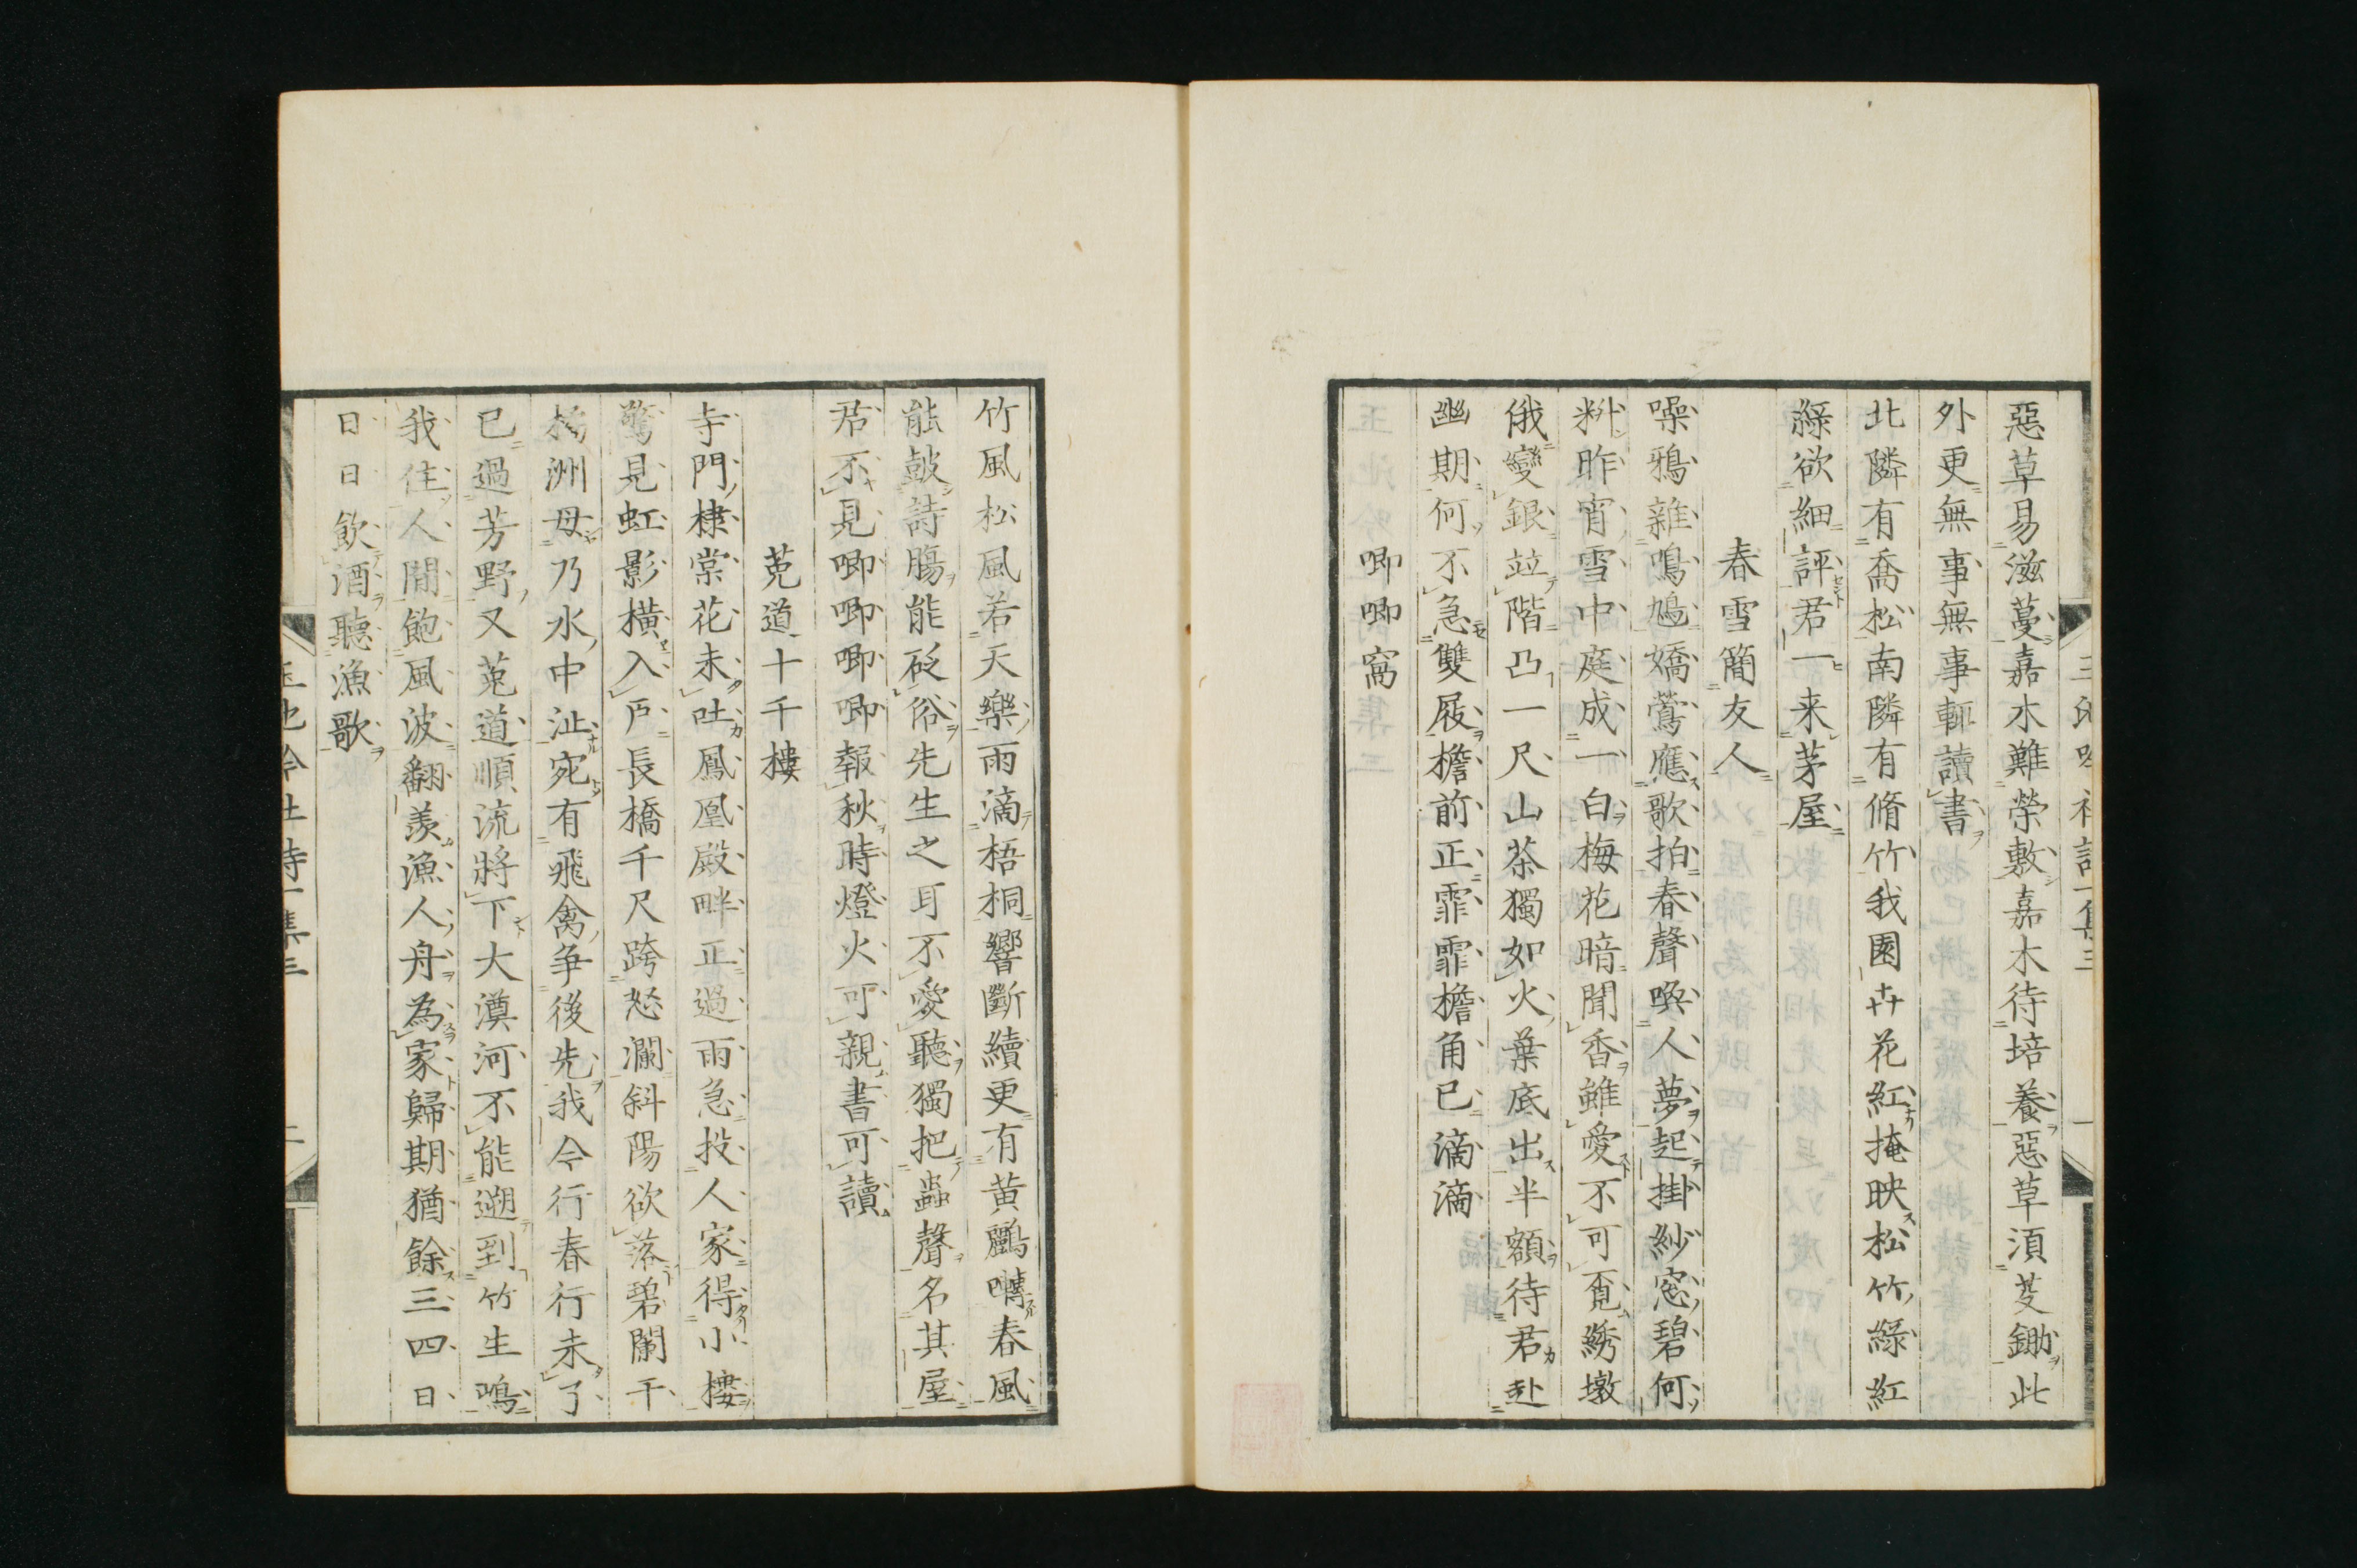 惡草易滋蔓嘉木難榮敷嘉木待培養惡草須芟鋤此
外更無事無事輒讀書
北隣有喬松南隣有脩竹我園卉花紅掩映松竹綠紅
綠欲細評君一来茅屋
春雪簡友人
噪鴉雜鳴鳩嬌鶯應歌拍春聲喚人夢起掛紗窓碧何
料昨宵雪中庭成一白梅花暗聞香雖愛不可覓綉墩
俄變銀竝階凸一尺山茶獨如火葉底出半額待君赴
幽期何不急雙屐檐前正霏霏檐角已滴滴
唧唧窩
竹風松風若天樂雨滴梧桐響斷續更有黄鸝囀春風
能鼓詩膓能砭俗先生之耳不愛聽獨把蟲聲名其屋
君不見唧唧唧唧報秋時燈火可親書可讀
莵道十千樓
寺門棣棠花未吐鳳凰殿畔正過雨急投人家得小樓
驚見虹影横入戸長橋千尺跨怒瀾斜陽欲落碧闌干
橘洲毋乃水中沚宛有飛禽争後先我今行春行未了
已過芳野又莵道順流將下大漠河不能遡到竹生鳴
我住人間飽風波翻羨漁人舟為家歸期猶餘三四日
日日飲酒聽漁歌